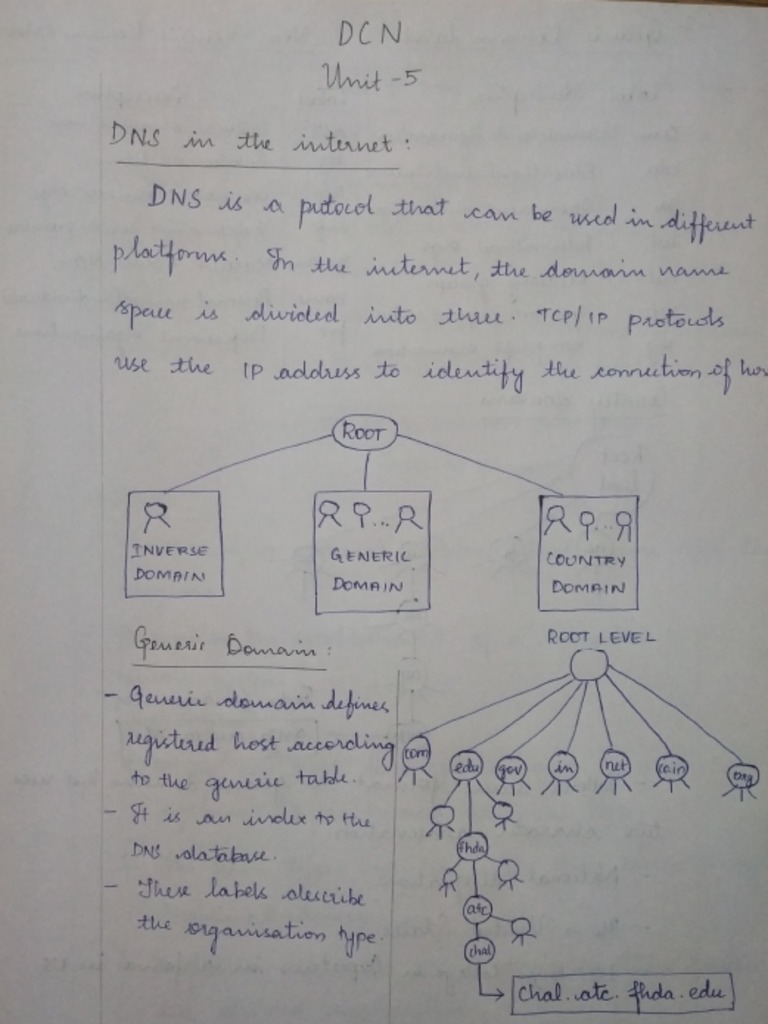 DCN
Unit-5
DNS in the internet:
DNS is a protocol that can be used in different
platforms. In the internet, the domain name
space is divided into three. TCP/IP protocols
use the IP address to identify the connection of
ROOT
INVERSE
DOMAIN
GENERIC
DOMAIN
COUNTRY
DOMAIN
Generic Domain:
- Generic domain defines
registered host according
to the generic table.
- It is an index to the
DNS database.
- These labels describe
the organisation type.
ROOT LEVEL
com
edu
gov
in
net
co.in
org
fhda
atc
chal
chal.atc.fhda.edu